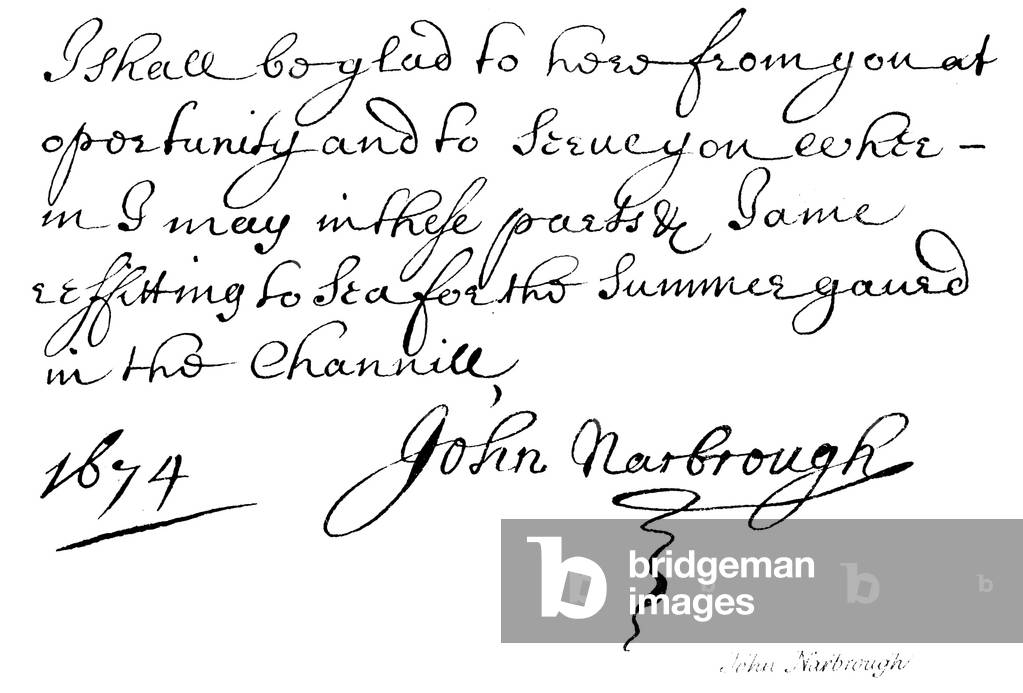 I shall be glad to here from you at
oportunity and to serve you wher –
in I may in these parts & I ame
reffitting to Sea for the Summer gaurd
in the Channill,
1674
John Narbrough
b bridgeman
images
b
b
John Narbrough